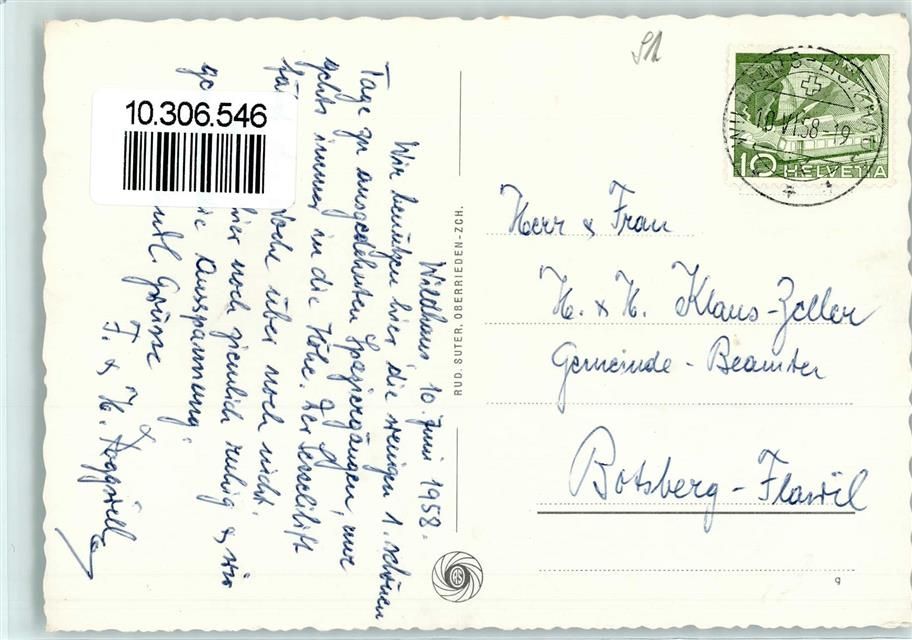 Wildhaus, 10. Juni 1958.
Wir benützen hier die wenigen 1. schönen
Tage zu ausgedehnten Spaziergängen, nur
gehts immer in die Höhe. Der Sessellift
fä
Woche über noch nicht.
hier noch ziemlich ruhig & wir
ge
die Ausspannung.
Grüsse
J. & H.
RUD. SUTER, OBERRIEDEN-ZCH.
RS
10 HELVETIA
10.VI.58-19
Herr & Frau
H. & H. Klaus-Zeller
Gemeinde-Beamter
Botsberg-Flawil
10.306.546